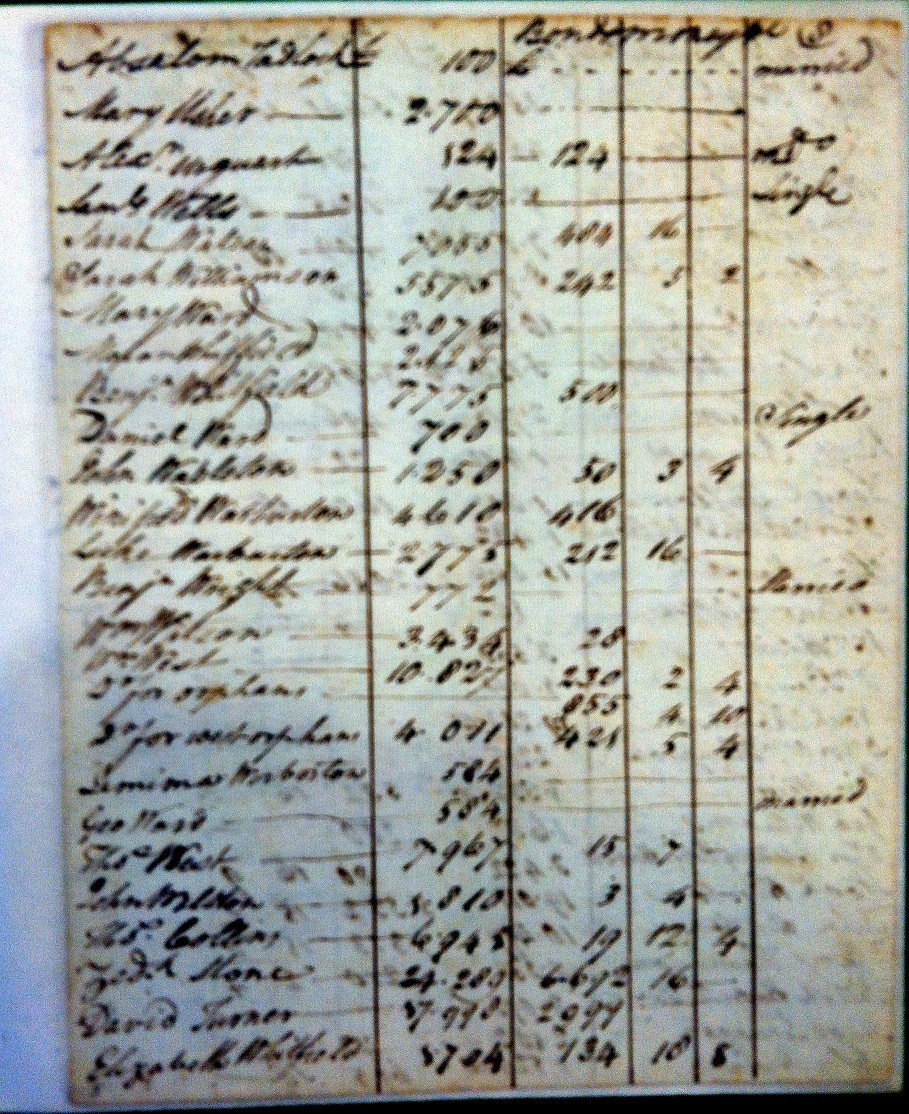 Bonds money &c
Absalom Tadlock £ 100 £ married
Mary Usher 2.700
Alexr. Urquart 124 124 md do
Saml Wills 100 Single
Sarah Watson 7055 484 16
Sarah Williamson 5575 242 5 2
Mary Ward 2.076
Whitfield
Benja. Whitfield 7775 500
Daniel Ward 700 Single
John Warburton 1.250 50 3 4
Winifred Warburton 4610 416
Luke Warburton 2.775 212 16
Benja Wright 772 Married
Wm Wilson 3.434 28
Wm West 10.827 230 2 4
Do for orphans 855 4 10
Do for west orphans 4.091 421 5 4
Jemima Worborton 584
Geo Ward 584 married
Thos West 7967 15 7
John 810 3 4
Thos. Collins 6.945 19 12 4
Zedh. Stone 24.289 6.692 16
David Turner 7.990 2997
Elizabeth Whitfield 3704 134 18 8